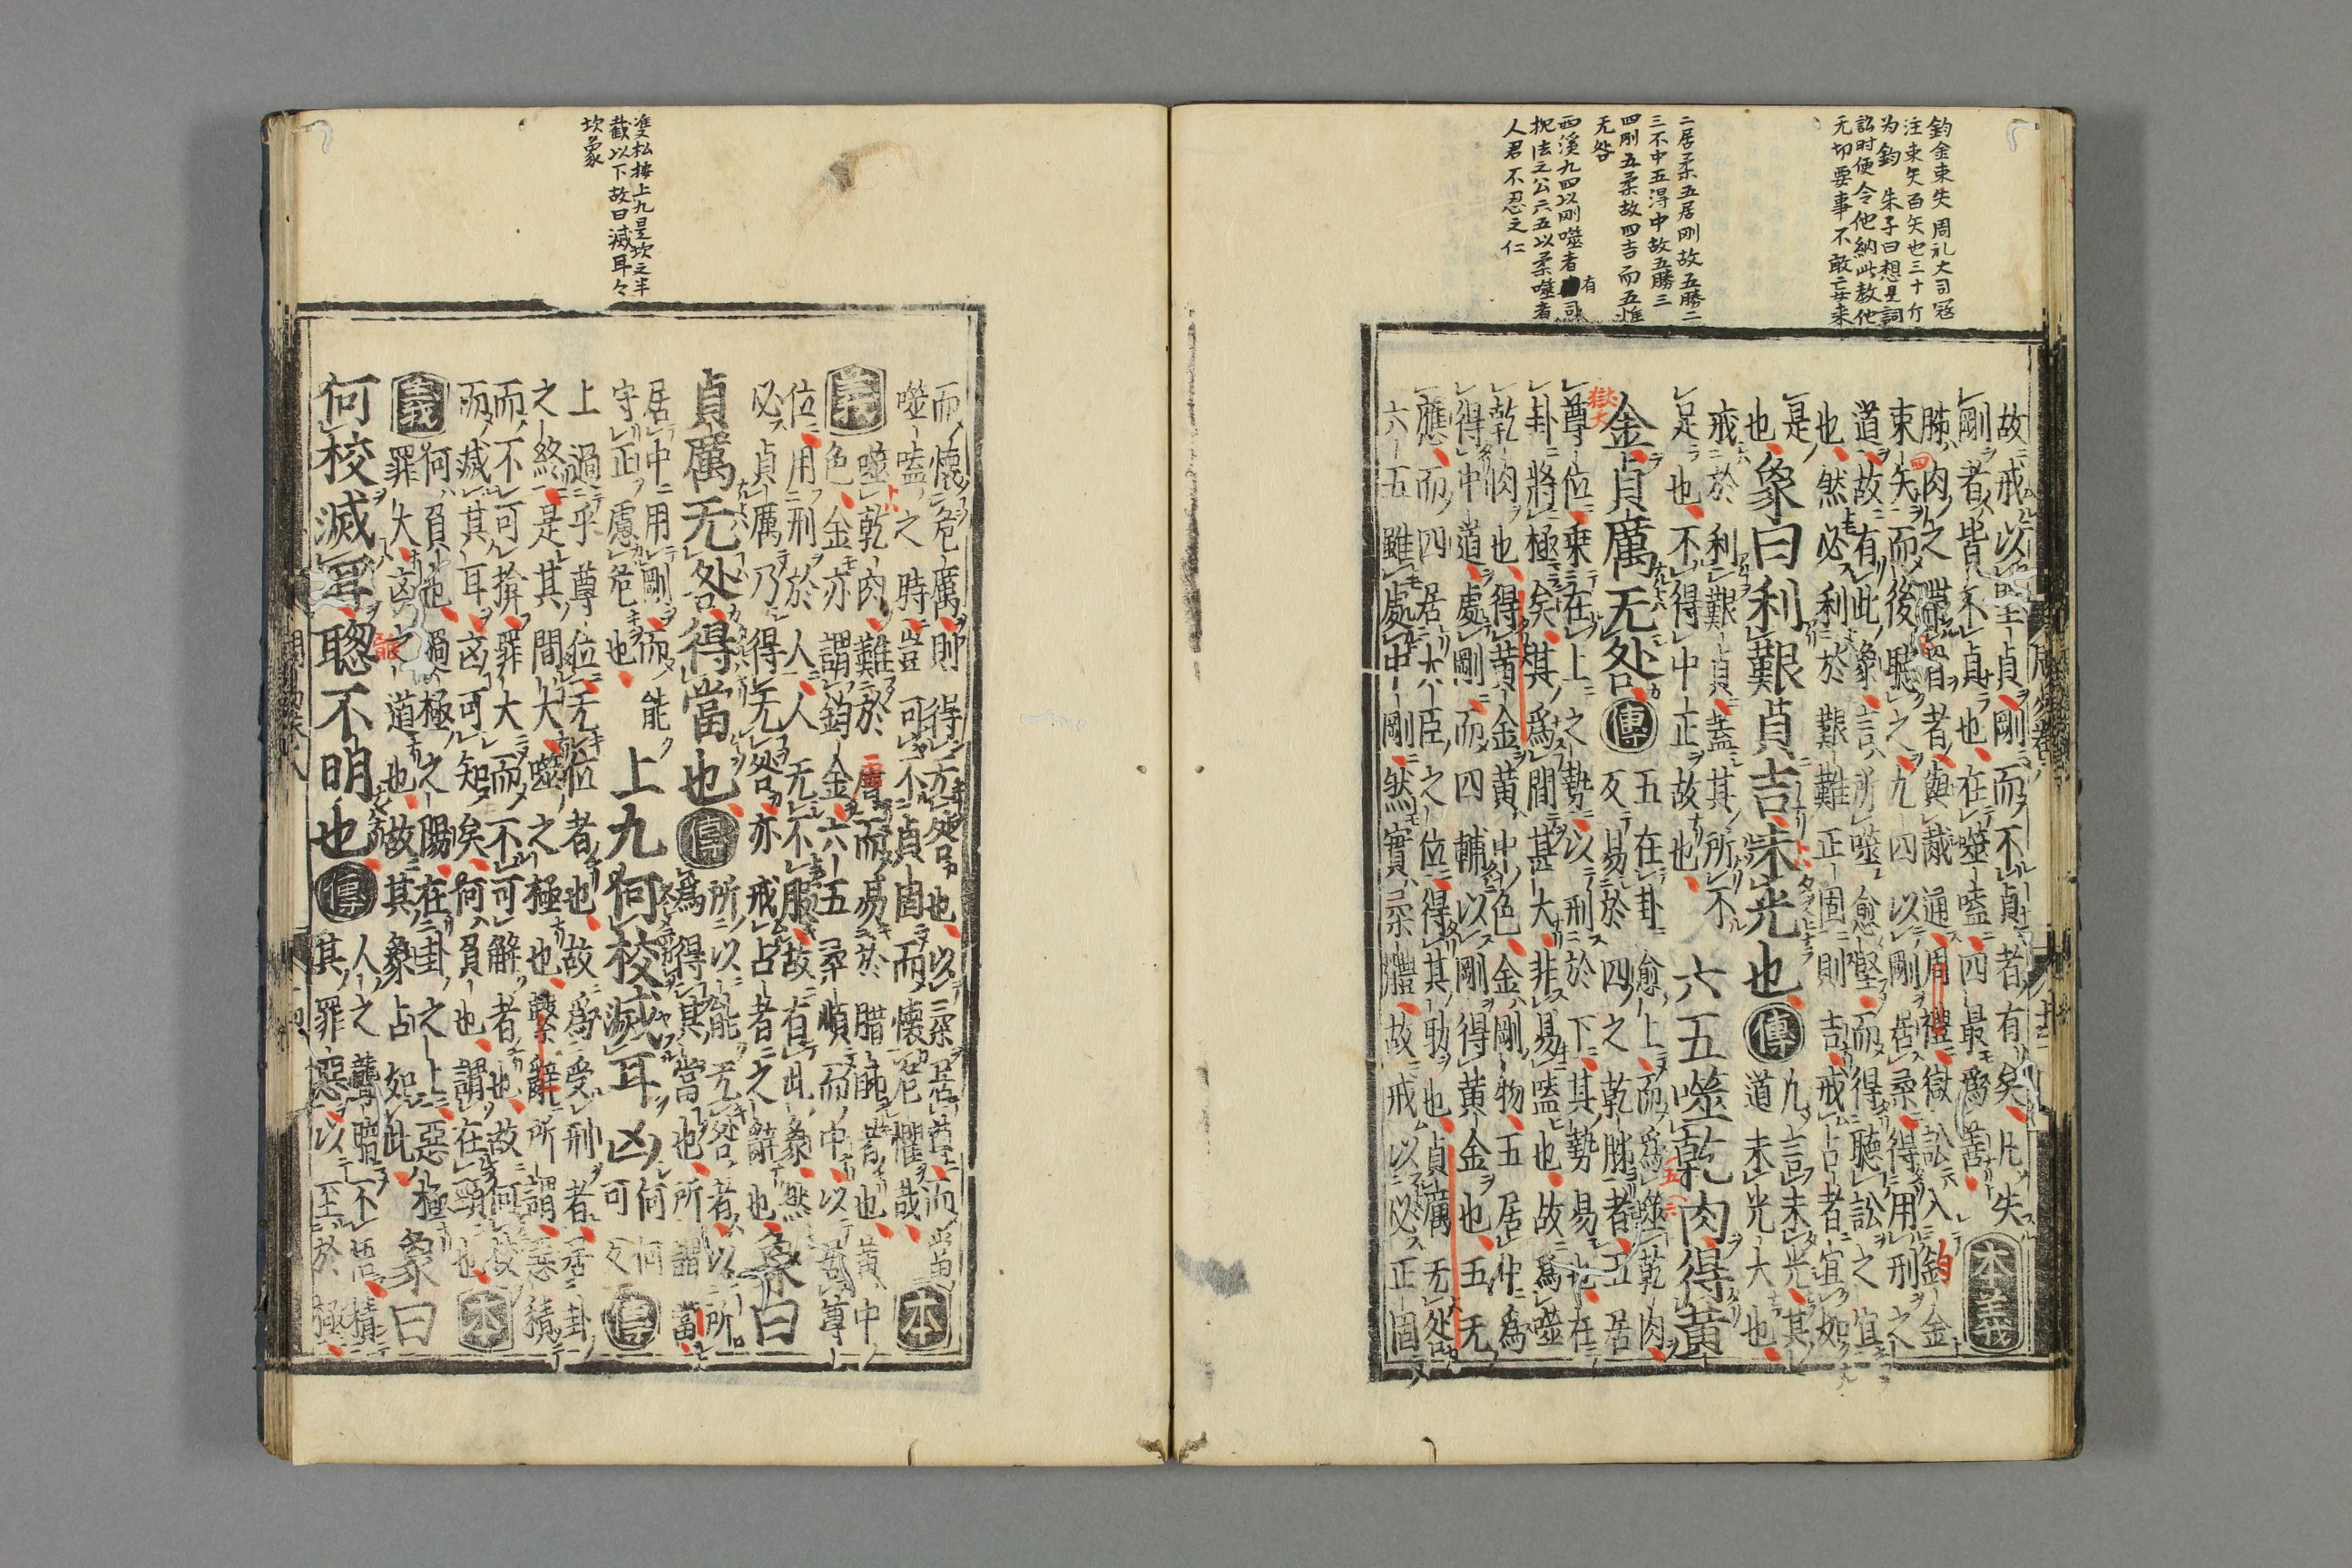 鈞金束矢周礼大司冦
注束矢百矢也三十斤
为鈞 朱子曰想是詞
訟时便令他納此教他
无切要事不敢妄来
二居柔五居剛故五勝二
三不中五淂中故五勝三
四剛五柔故四吉而五惟
无咎
西溪九四以剛噬者有司
执法之公六五以柔噬者
人君不忍之仁
故戒以堅貞剛而不貞者有矣凡失
剛者皆不貞也在噬嗑四最爲善 本義
胏肉之帶骨者與胾通周禮獄訟入鈞金
束矢而後聽之九四以剛居柔得用刑之
道故有此象言所噬愈堅而得聽訟之宜
也然必利於艱難正固則吉戒占者宜如
是
也
象曰利艱貞吉未光也 傳
凡言未光其
道未光大也
戒於利艱貞蓋其所不
足也不得中正故也
六五噬乾肉得黃
金貞厲无咎 傳
五在卦愈上而爲噬乾肉
反易於四之乾胏者五居
尊位乘在上之勢以刑於下其勢易也在
卦將極矣其爲間甚大非易嗑也故爲噬
乾肉也得黃金黃中色金剛物五居中爲
得中道處剛而四輔以剛得黃金也五无
應而四居大臣之位得其助也貞厲无咎
六五雖處中剛然實柔體故戒以必正固
雙松按上九是坎之半
截以下故曰滅耳々
坎象
而懷危厲則得无咎也以柔居尊而當
噬嗑之時豈可不貞固而懷危懼哉
本
義
噬乾肉難於膚而易於腊胏者也黃中
色金亦謂鈞金六五柔順而中以居尊
位用刑於人人无不服故有此象然
必貞厲乃得无咎亦戒占者之辭也
象曰
貞厲无咎得當也 傳
所以能无咎者以所
爲得其當也所謂當
居中用剛而能
守正慮危也
上九何校滅耳凶
何何
可反
傳
上過乎尊位无位者也故爲受刑者居卦
之終是其間大噬之極也繫辭所謂惡積
而不可揜罪大而不可解者也故何校
而滅其耳凶可知矣何負也謂在頸也
本
義
何負也過極之陽在卦之上惡極
罪大凶之道也故其象占如此
象曰
何校滅耳聰不明也 傳
人之聾暗不悟積
其罪惡以至於極